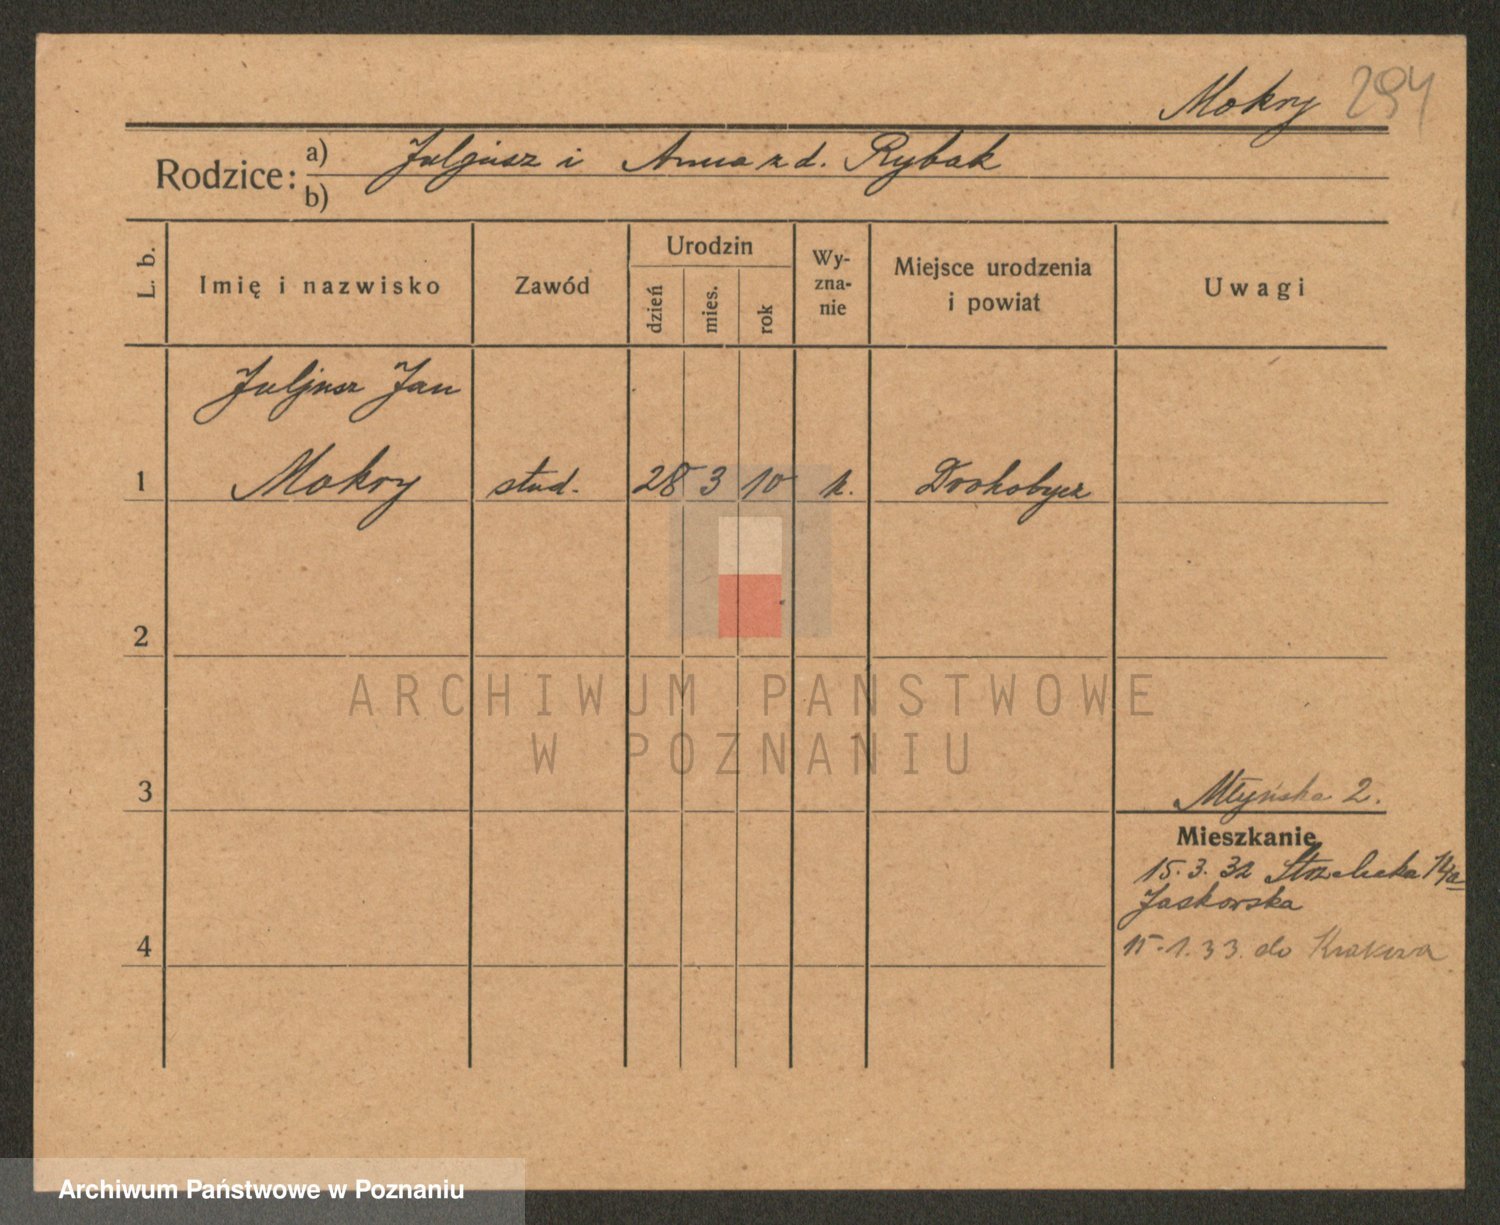 Mokry 294
Rodzice: a) Juljusz i Anna z d. Rybak
b)
L. b. Imię i nazwisko Zawód Urodzin dzień mies. rok Wy-zna-nie Miejsce urodzenia i powiat Uwagi
Juljusz Jan
1 Mokry stud. 28 3 10 k. Drohobycz
2
ARCHIWUM PAŃSTWOWE
W POZNANIU
3 Młyńska 2.
Mieszkanie
15.3.32 Strzelecka 14a
Jaskorska
15.1.33. do Krakowa
4
Archiwum Państwowe w Poznaniu